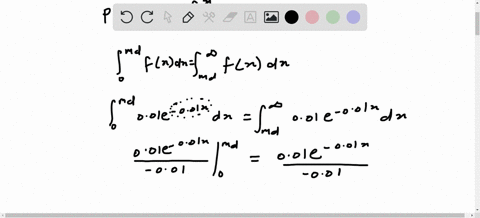 P
∫₀^md f(x)dx = ∫_md^∞ f(x) dx
∫₀^md 0.01e^(-0.01x) dx = ∫_md^∞ 0.01 e^(-0.01x) dx
0.01e^(-0.01x)/-0.01 |₀^md = 0.01e^(-0.01x)/-0.01